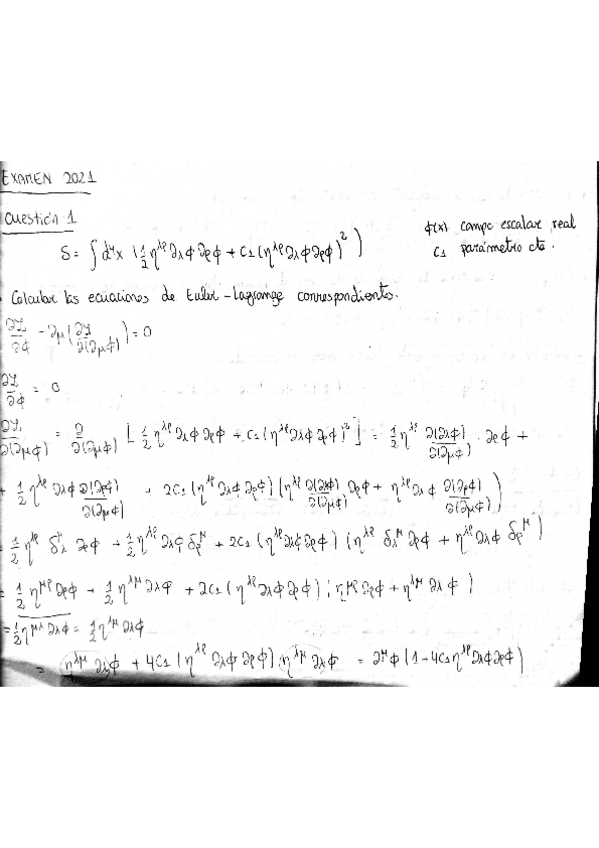 EXAMEN 2021
Cuestión 1
S = ∫ d⁴x (1/2 η^{λρ} ∂λφ ∂ρφ + C₁ (η^{λρ} ∂λφ ∂ρφ)²)
φ(x) campo escalar real
C₁ parámetro cte.
Calcular las ecuaciones de Euler-Lagrange correspondientes.
∂ℒ/∂φ - ∂μ(∂ℒ/∂(∂μφ)) = 0
∂ℒ/∂φ = 0
∂ℒ/∂(∂μφ) = ∂/∂(∂μφ) [1/2 η^{λρ} ∂λφ ∂ρφ + C₁ (η^{λρ} ∂λφ ∂ρφ)²] = 1/2 η^{λρ} ∂(∂λφ)/∂(∂μφ) · ∂ρφ +
+ 1/2 η^{λρ} ∂λφ ∂(∂ρφ)/∂(∂μφ) + 2C₁ (η^{λρ} ∂λφ ∂ρφ) (η^{λρ} ∂(∂λφ)/∂(∂μφ) ∂ρφ + η^{λρ} ∂λφ ∂(∂ρφ)/∂(∂μφ))
= 1/2 η^{λρ} δλ^μ ∂ρφ + 1/2 η^{λρ} ∂λφ δρ^μ + 2C₁ (η^{λρ} ∂λφ ∂ρφ) (η^{λρ} δλ^μ ∂ρφ + η^{λρ} ∂λφ δρ^μ)
= 1/2 η^{μρ} ∂ρφ + 1/2 η^{λμ} ∂λφ + 2C₁ (η^{λρ} ∂λφ ∂ρφ) (η^{μρ} ∂ρφ + η^{λμ} ∂λφ)
= 1/2 η^{μλ} ∂λφ = 1/2 η^{λμ} ∂λφ
= η^{λμ} ∂λφ + 4C₁ (η^{λρ} ∂λφ ∂ρφ) · η^{λμ} ∂λφ = ∂^μφ (1 - 4C₁ η^{λρ} ∂λφ ∂ρφ)